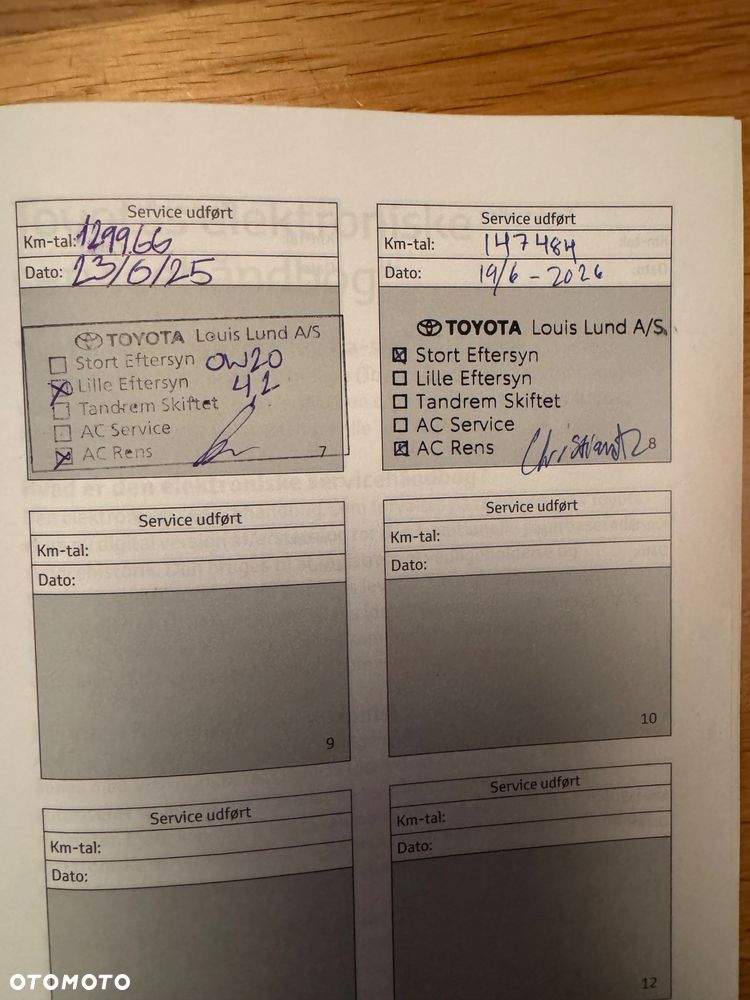 Service udført
Km-tal: 129966
Dato: 23/6/25
TOYOTA Louis Lund A/S
Stort Eftersyn OW20
Lille Eftersyn 4,2
Tandrem Skiftet
AC Service
AC Rens
7
Service udført
Km-tal: 147484
Dato: 19/6-2026
TOYOTA Louis Lund A/S
Stort Eftersyn
Lille Eftersyn
Tandrem Skiftet
AC Service
AC Rens
8
Service udført
Km-tal:
Dato:
9
Service udført
Km-tal:
Dato:
10
Service udført
Km-tal:
Dato:
Service udført
Km-tal:
Dato:
12
OTOMOTO